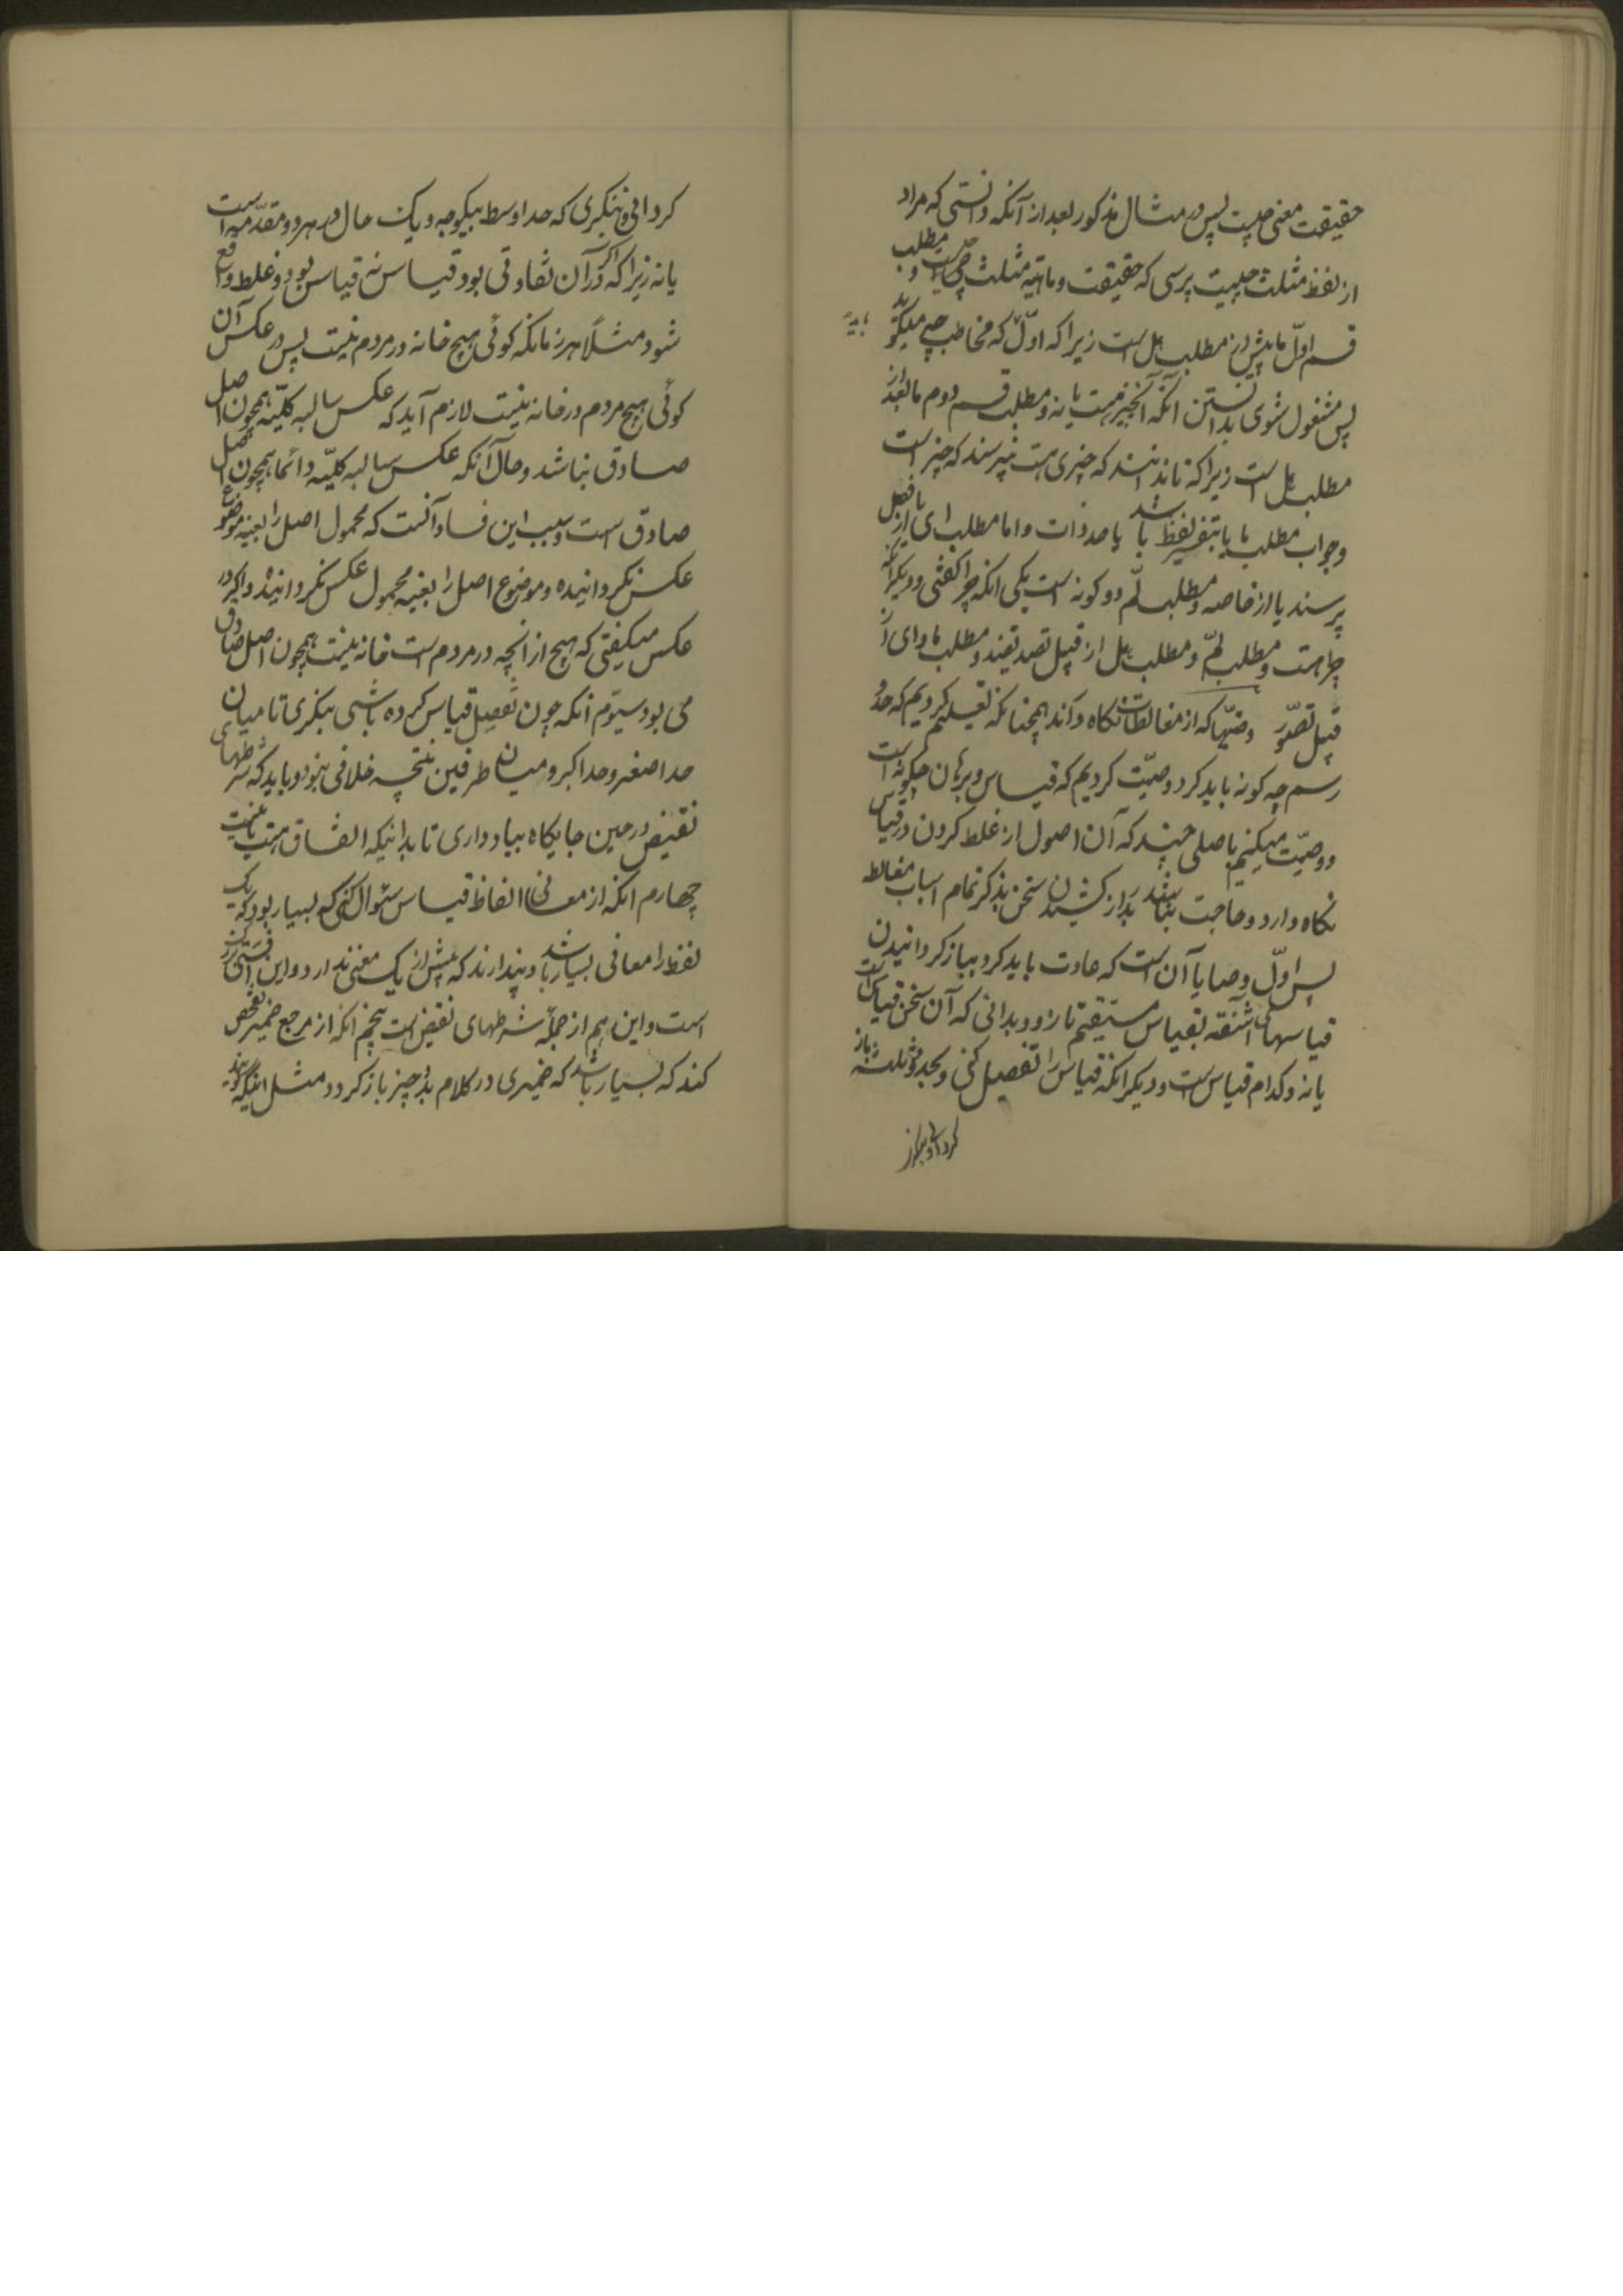 حقیقت معنی چیست پس در مثال مذکور بعد از آنکه دانستی که مراد
از لفظ مثلث چیست پرسی که حقیقت و ماهیّه مثلث چیست و مطلب
قسم اوّل ما پیش از مطلب هل است زیرا که اوّل که مخاطب چه میگوید
پس مشغول شوی بدانستن آنکه آنچیز هست یا نه و مطلب قسم دوم ما بعد از
مطلب هل است زیرا که تا ندانند که چیزی هست نپرسند که چیز است
و جواب مطلب ما یا بتفسیر لفظ باشد یا حد ذات و اما مطلب ای از فصل
پرسند یا از خاصه و مطلب لم دو کونه است یکی انکه چرا کفتی و دیکر آنکه
چرا هست و مطلب لم و مطلب هل از قبیل تصدیقند و مطلب ما و ای از
قبیل تصوّر وصیّتها که از مغالطات نکاه دارند همچنانکه تعلیم کردیم که حد و
رسم چه کونه باید کرد وصیّت کردیم که قیاس و برهان چکونه است
و وصیّت میکنیم باصلی چند که آن اصول از غلط کردن در قیاس
نکاه دارد و حاجت نباشد بدراز کشیدن سخن بذکر تمام اسباب مغالطه
پس اوّل وصایا آن است که عادت باید کرد بباز کردانیدن
قیاسهای آشفته بقیاس مستقیم تا زود بدانی که آن سخن قیاس است
یا نه و کدام قیاس است و دیکر انکه قیاس را تفصیل کنی و بحدود ثلثه باز
کردانی و بنکری که حد اوسط بیکوجه و یک حال در هر دو مقدّمه است
یا نه زیرا که اکر در آن تفاوتی بود قیاس نه قیاس بود و غلط واقع
شود مثلاً هر زمانکه کوئی هیچ خانه در مردم نیست پس در عکس آن
کوئی هیچ مردم در خانه نیست لازم آید که عکس سالبه کلیّه همچون اصل
صادق نباشد و حال آنکه عکس سالبه کلیّه دائما همچون اصل
صادق است و سبب این فساد آنست که محمول اصل را بعینه موضوع
عکس نکردانیده و موضوع اصل را بعینه محمول عکس نکردانیده و اکر در
عکس میکفتی که هیچ از آنچه در مردم است خانه نیست همچون اصل صادق
می بود سیّوم انکه چون تفصیل قیاس کرده باشی بنکری تا میان
حد اصغر و حد اکبر و میان طرفین نتیجه خلافی نبود و باید که شرطهای
نقیض در حین جایکاه بیاد داری تا بدانیکه اتفاق هست یا نیست
چهارم انکه از معانی الفاظ قیاس سئوال کنی که بسیار بود که یک
لفظ را معانی بسیار باشد و پندارند که بیش از یک معنی ندارد و این
است و این هم از جملهٔ شرطهای نقیض است پنجم انکه از مرجع ضمیر تفحص
کند که بسیار باشد که ضمیری در کلام بدو چیز باز کردد مثل اینکه کویند